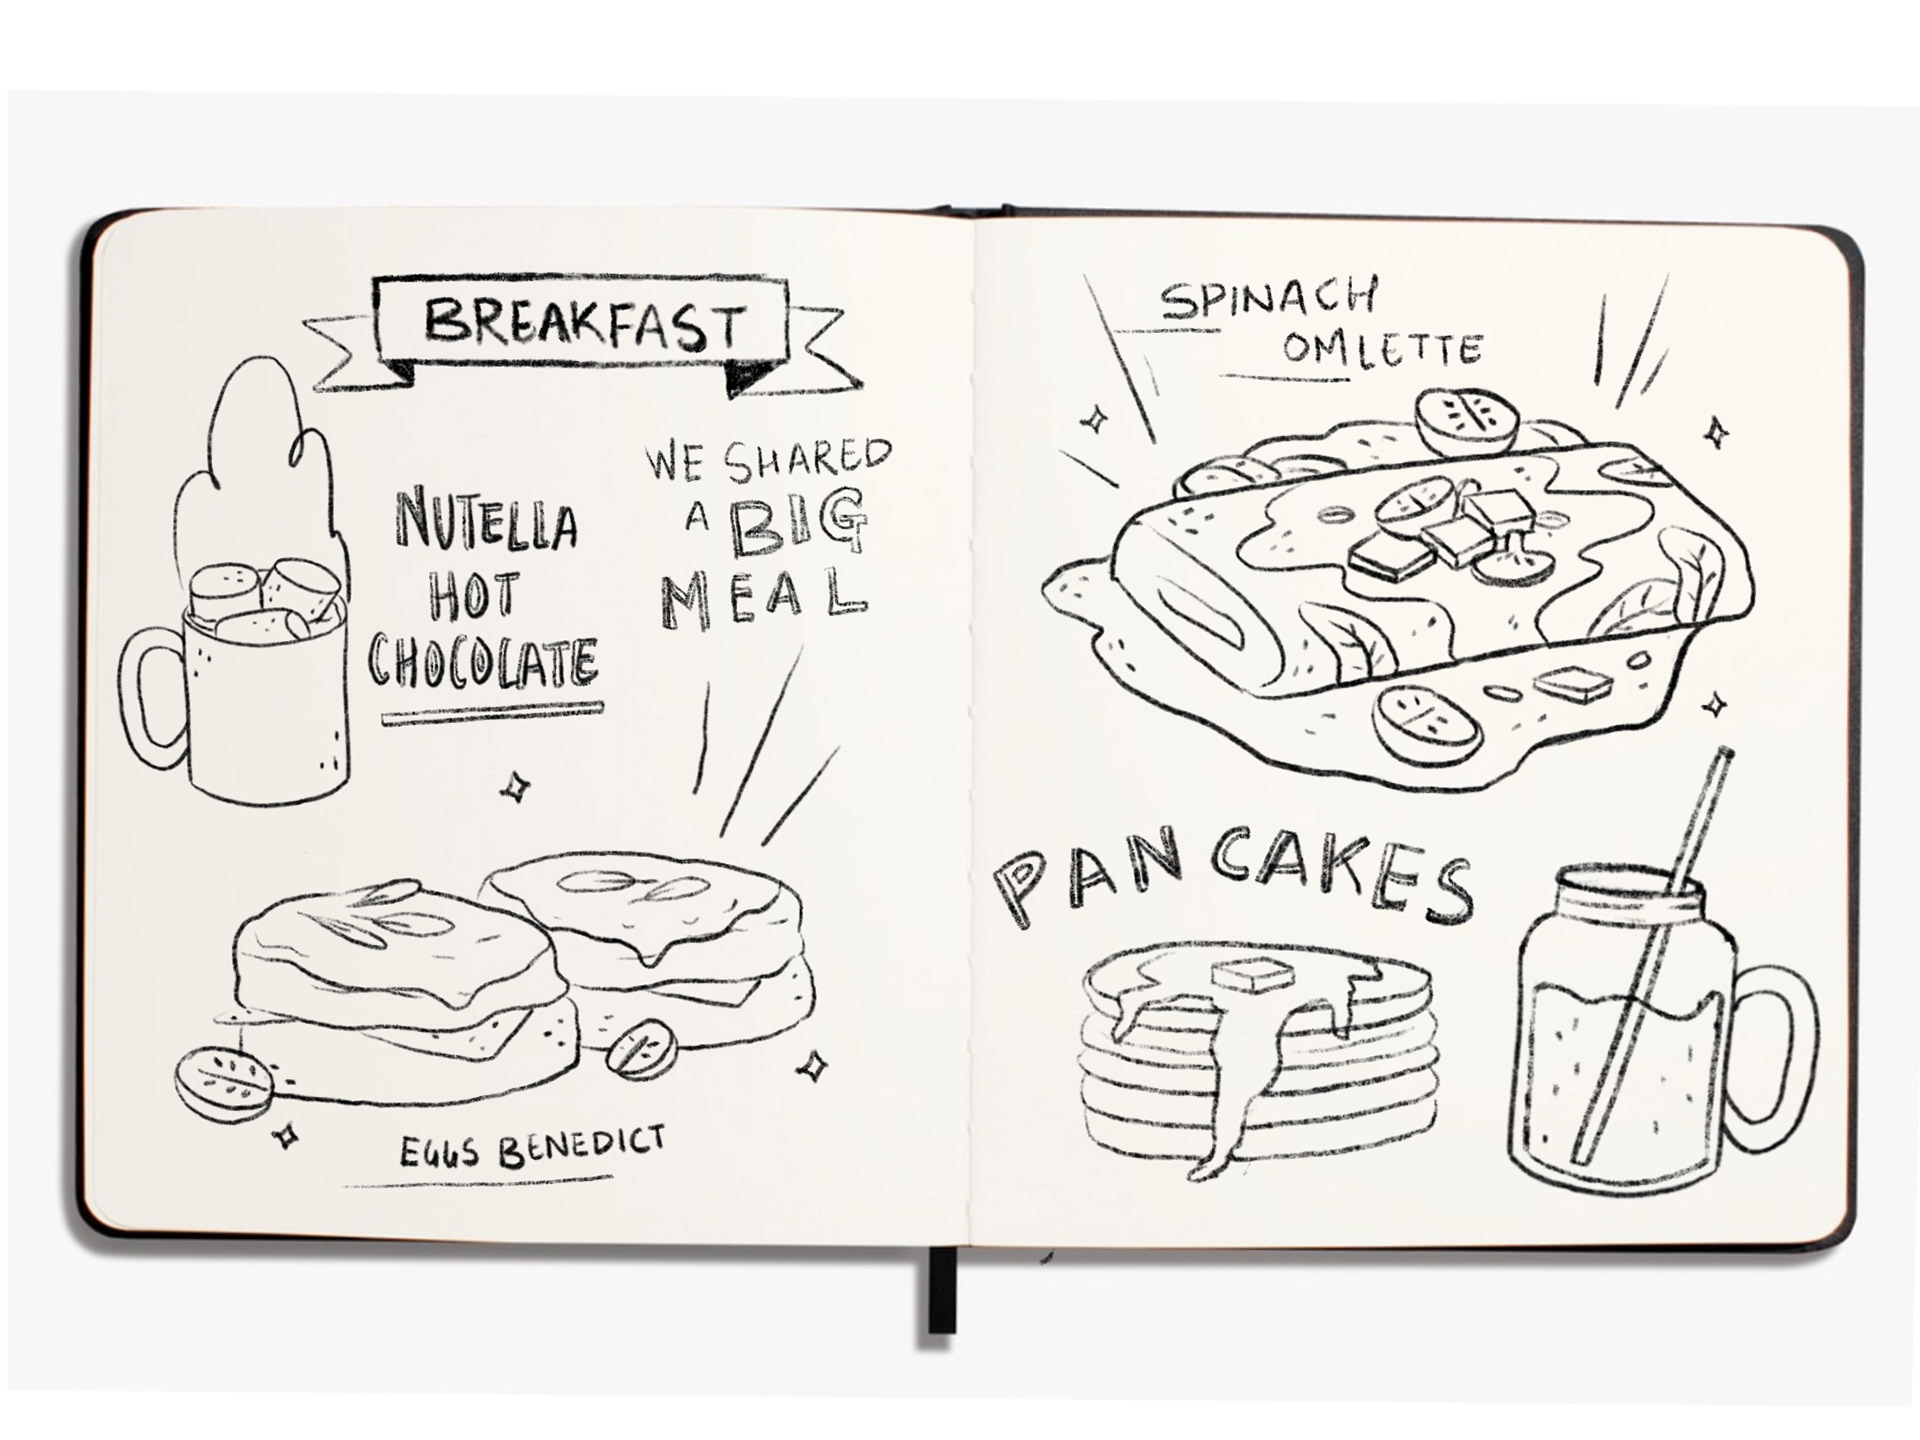 BREAKFAST
NUTELLA
HOT
CHOCOLATE
WE SHARED
A BIG
MEAL
EGGS BENEDICT
SPINACH
OMLETTE
PANCAKES